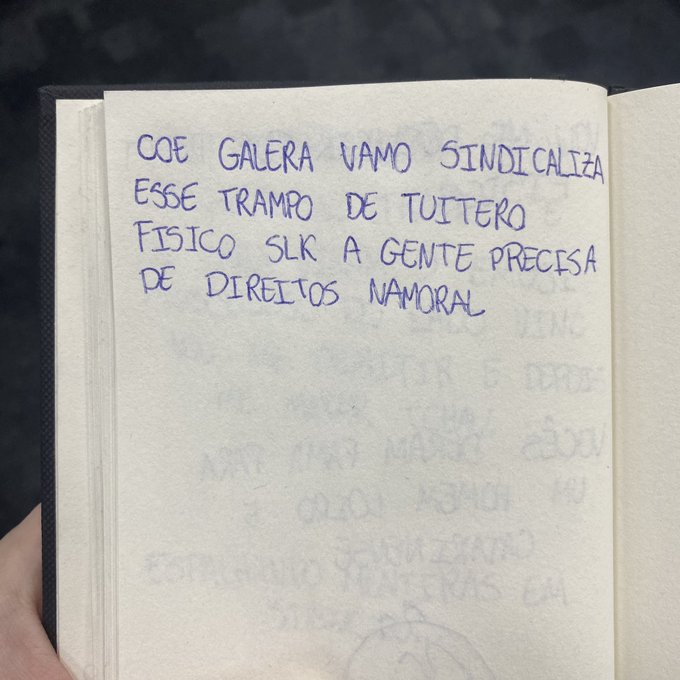 COE GALERA VAMO SINDICALIZA
ESSE TRAMPO DE TUITERO
FISICO SLK A GENTE PRECISA
DE DIREITOS NAMORAL